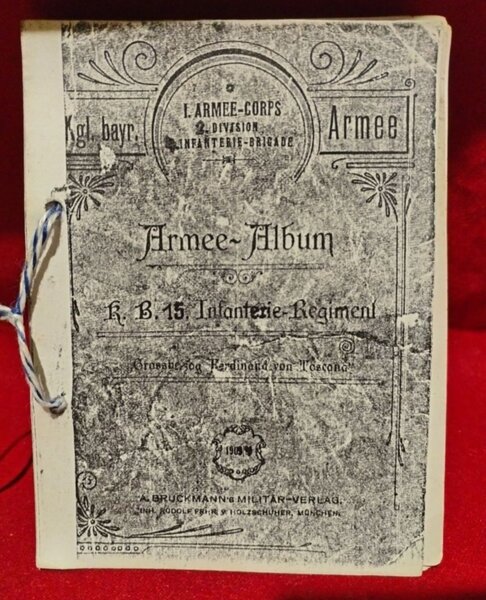 Kgl. bayr.
Armee
I. ARMEE-CORPS
2. DIVISION
INFANTERIE-BRIGADE
Armee-Album
K. B. 15. Infanterie-Regiment
"Grossherzog Ferdinand von Toscana"
1909
A. BRUCKMANN'S MILITÄR-VERLAG,
INH. RUDOLF FRHR. V. HOLZSCHUHER, MÜNCHEN.